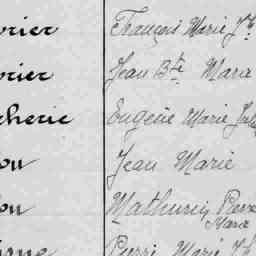 vrier François Marie Jh
vrier Jean Bte Marie
cherie Eugène Marie
ou Jean Marie
ou Mathurin Pierre
Marie
Pierre Marie Jh